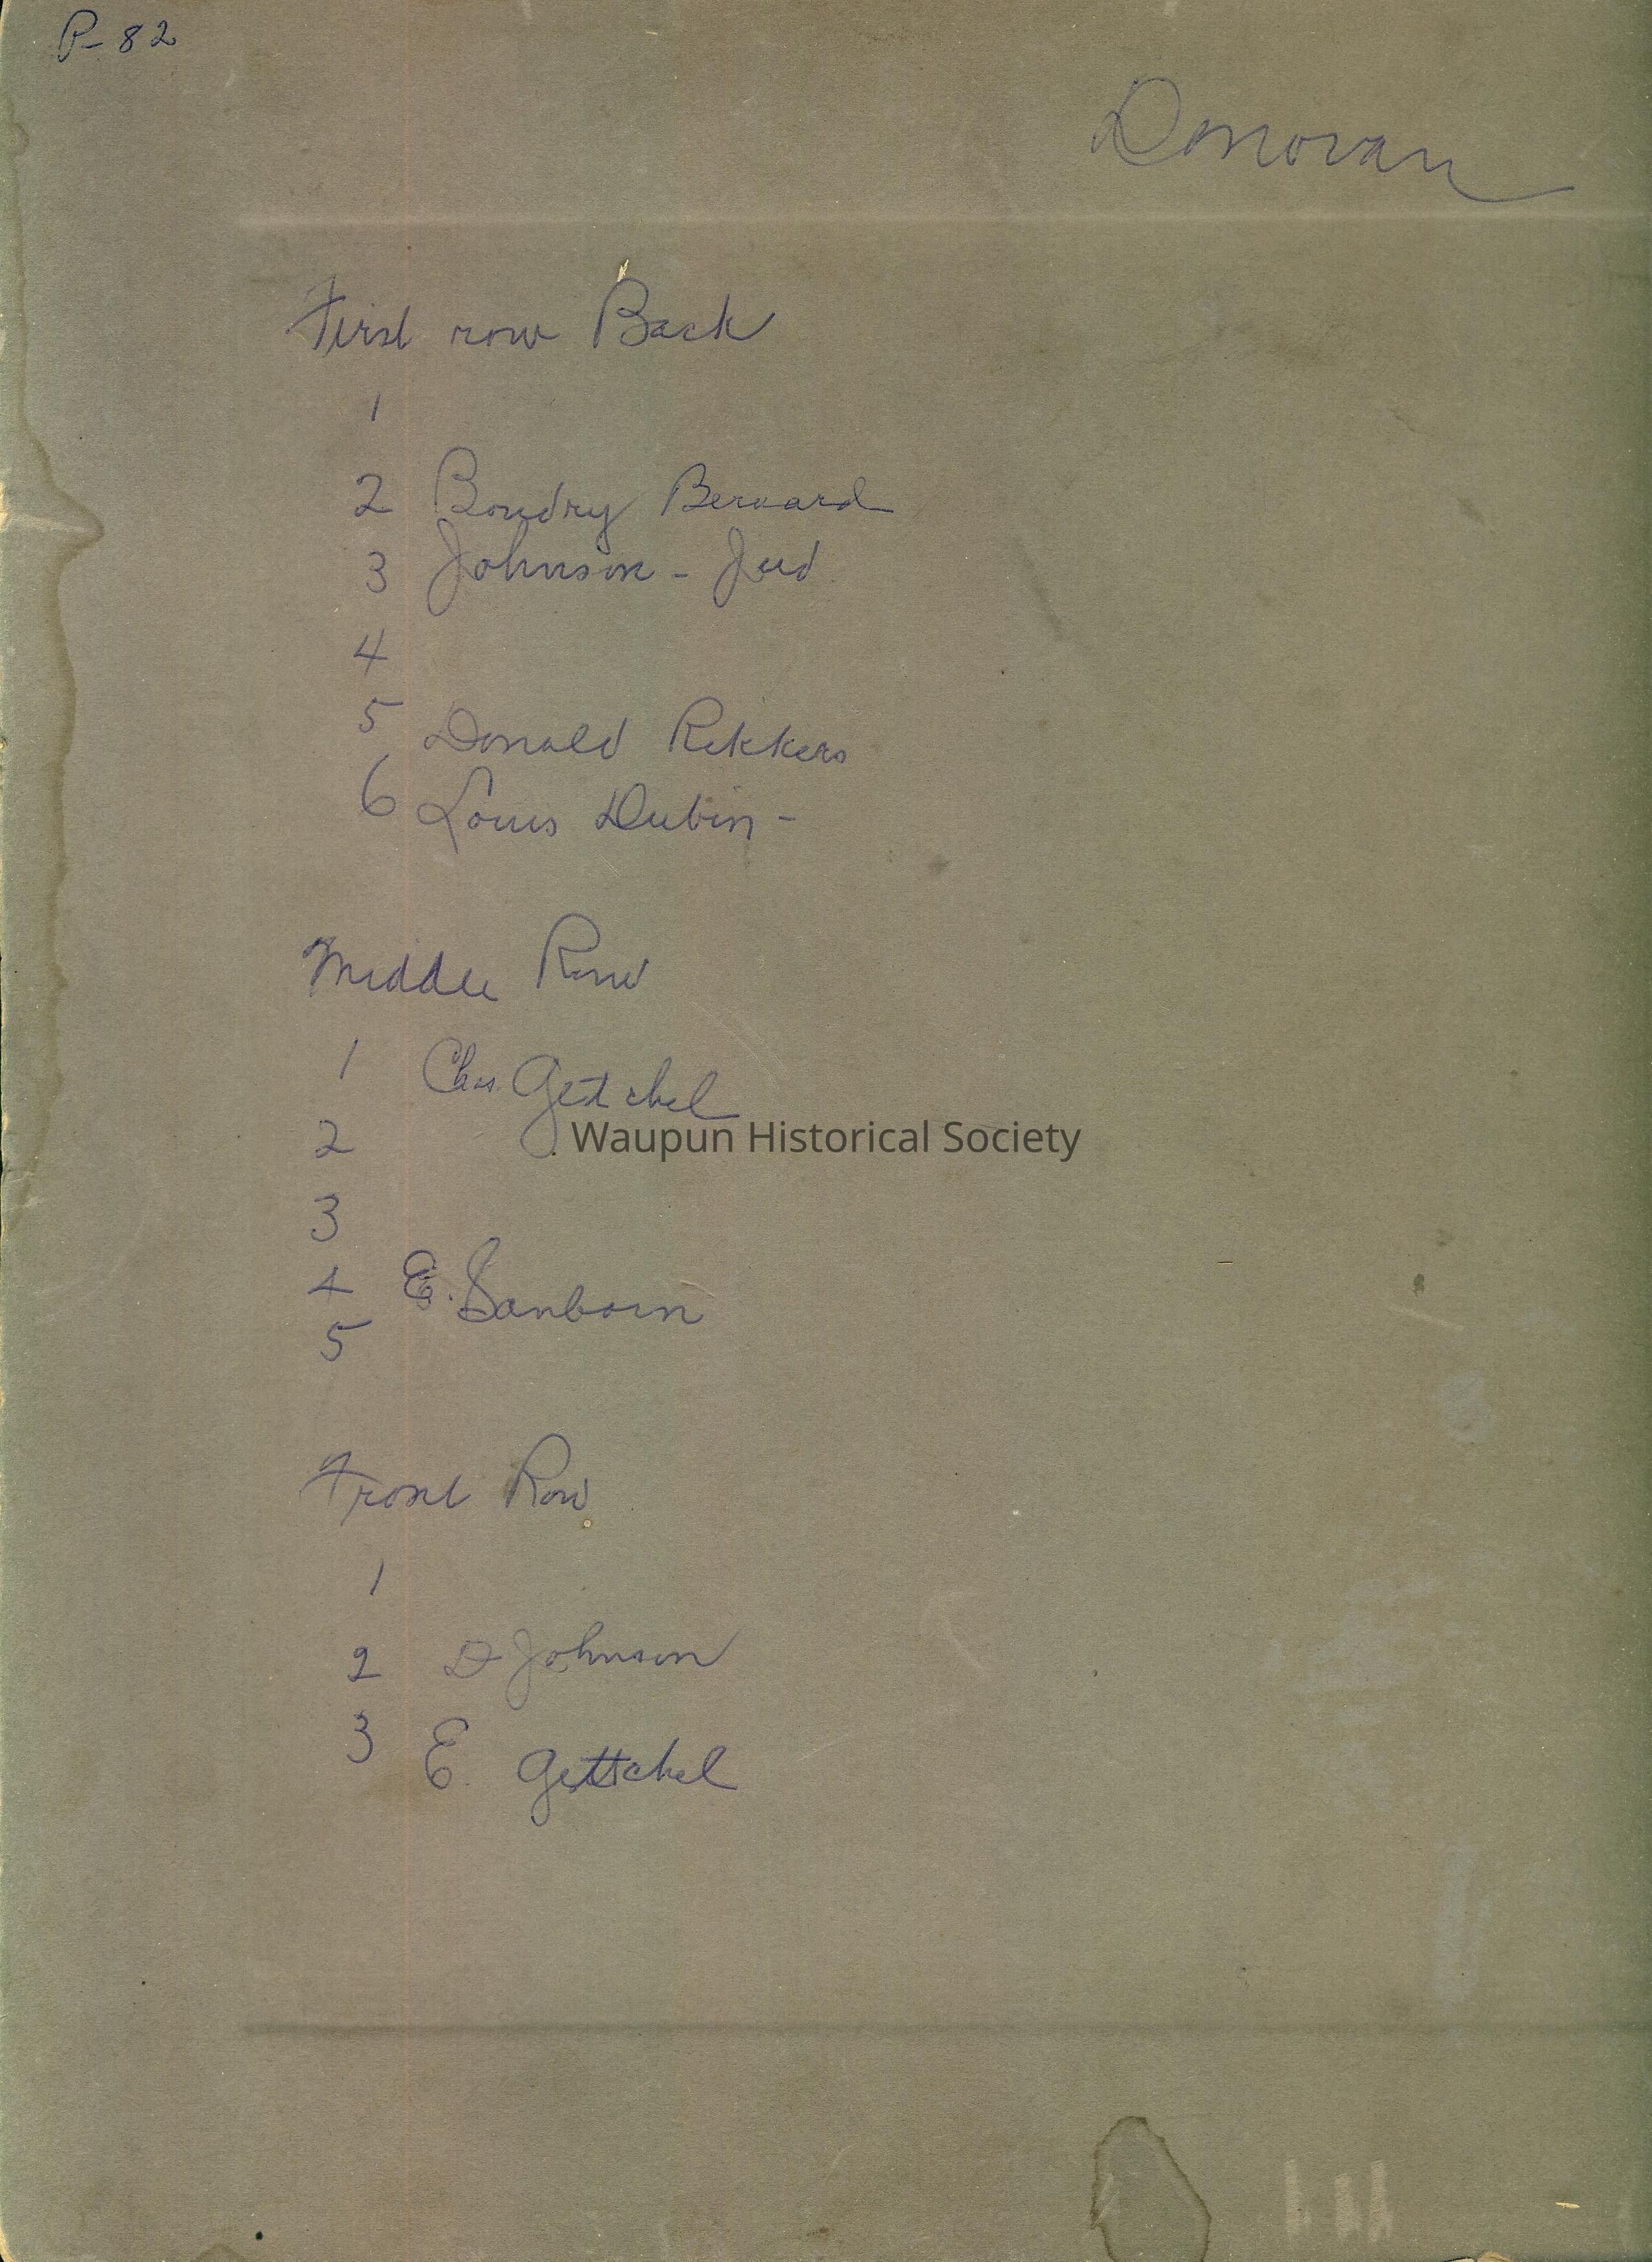 P-82
Donovan
First row Back
1
2 Boudry Bernard
3 Johnson - Jud
4
5 Donald Rekkers
6 Louis Dubin -
Middle Row
1 Chas. Getchel
Waupun Historical Society
2
3
4 E. Sanborn
5
Front Row
1
2 D Johnson
3 E. Gettchel